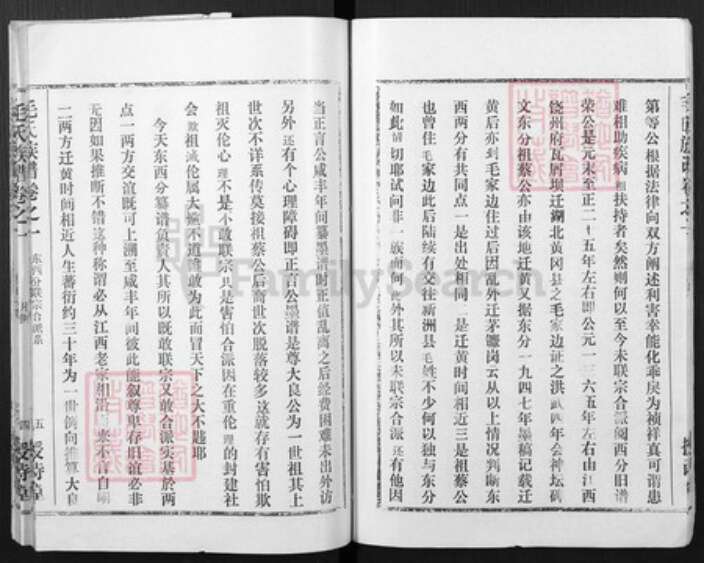 第等公根据法律向双方阐述利害幸能化乖戾为祯祥真可谓患
难相助疾病相扶持者矣然则何以至今未联宗合派阅西分旧谱
荣公是元末至正二十五年左右即公元一三六五年左右由江西
饶州府瓦屑坝迁湖北黄冈县之毛家边证之洪武四年会神坛碑
文东分祖蔡公亦由该地迁黄又据东分一九四七年墨稿记载迁
黄后亦到毛家边住过后因乱外迁茅镰岗云从以上情况判断东
西两分有共同点一是出处相同二是迁黄时间相近三是蔡公
也曾住毛家边此后陆续有交往新洲县毛姓不少何以独与东分
如此情切耶试问非一族而何此外其所以未联宗合派还有他因
毛氏族谱卷之一
当正言公咸丰年间纂墨谱时正值乱离之后经费困难未出外访
另外还有个心理障碍即正言公墨谱是尊大良公为一世祖其上
世次不详系传莫接祖蔡公后裔世次脱落较多这就存有害怕欺
祖灭伦心理不是不敢联宗只是害怕合派因在重伦理的封建社
会欺祖灭伦属大逆不道谁敢为此而冒天下之大不韪耶
今天东西分纂谱负责人其所以既敢联宗又敢合派实基於两
点一两方交谊既可上溯至咸丰年间彼此能叙尊卑存旧谊必非
无因如果推断不错这种称谓必从江西老家相沿而来不言自明
二两方迁黄时间相近人生蕃衍约三十年为一世倒向推算大良
毛氏族谱卷之一
东西分联宗合派系
五
四
FamilySearch